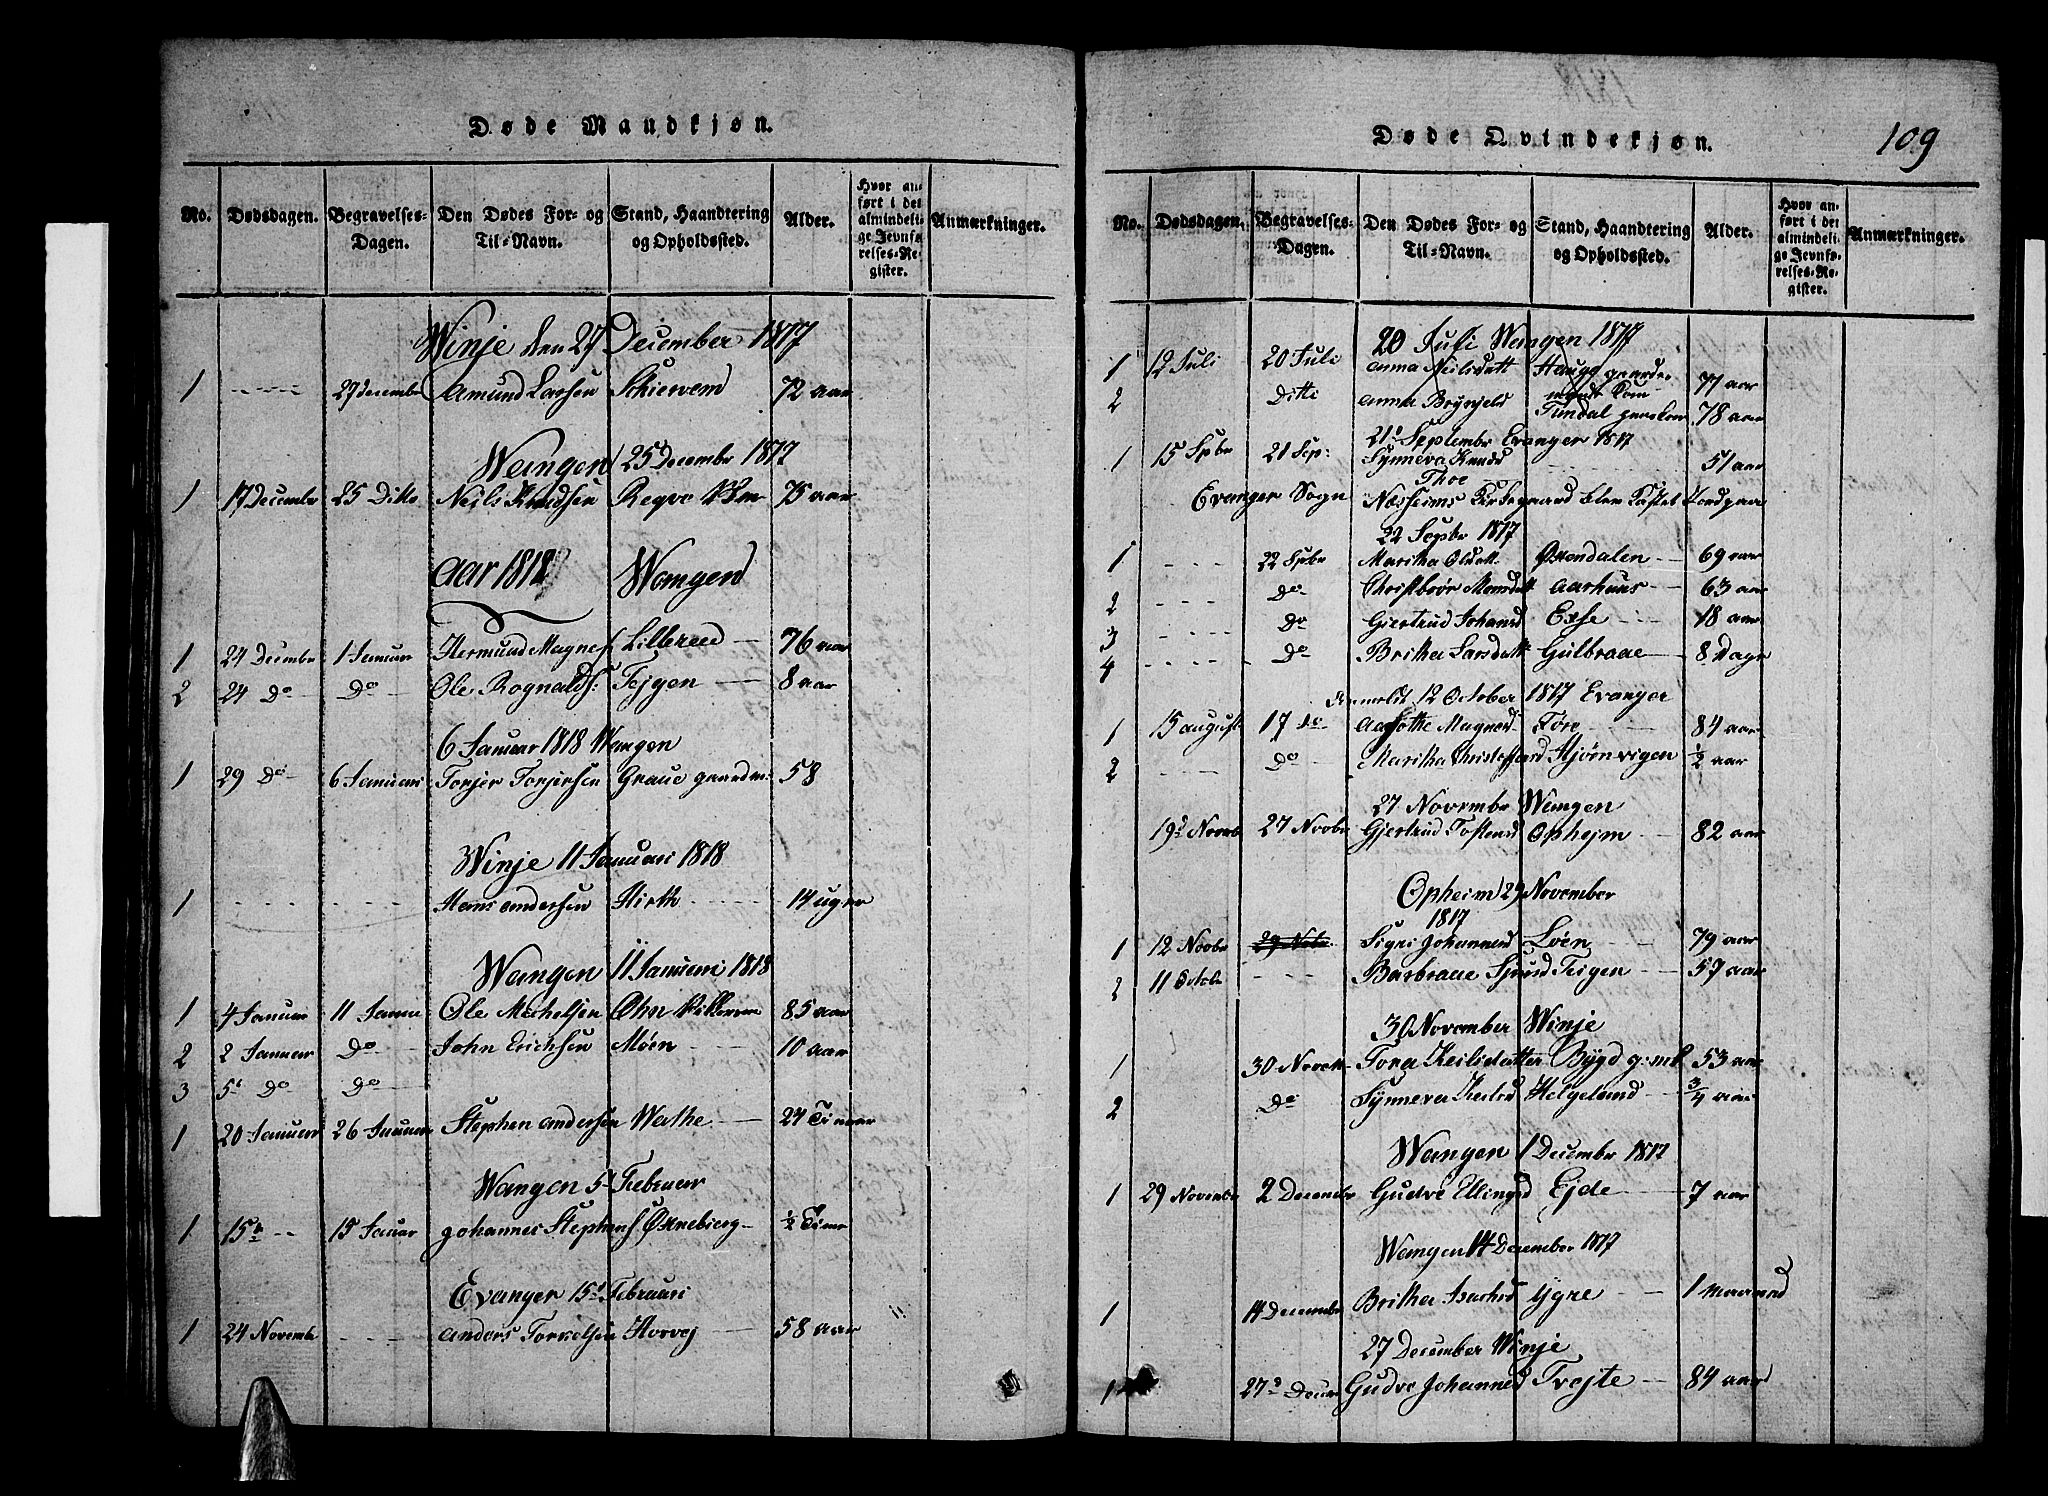 Døde Mandkjøn.
No. Dødsdagen. Begravelses-Dagen. Den Dødes For- og Til-Navn. Stand, Haandtering og Opholdssted. Alder. Hvor anført i det almindelige Jevnførelses-Register. Anmærkninger.
Winje den 27 December 1817
1 - - - - 27 december Amund Larsen Skiervem 72 aar
Wangen 25 Decembr 1817
1 17 Decembr 25 Ditto Neils Knudsen Reqve 75 aar
Aar 1818 Wangen
1 24 Decembr 1 Januar Hermund Magnes Lilleree 76 aar
2 24 Do Do Ole Rognalds: Tejgen 8 aar
6 Januar 1818 Wangen
1 29 Do 6 Januari Torjer Torjersen Graue gaardm: 58
Winje 11 Januari 1818
1 - - - - - - - Mons andersen Hirth 14 uger
Wangen 11 Januari 1818
1 4 Januar 11 Janu Ole Michelsen 85 aar
2 2 Januar Do John Erichsen Møen 10 aar
3 5t Do Do
1 20 Januar 26 Januar Stephen andersen Wethe 24 Timer
Wangen 5 Februar
1 15 - - 15 Januar Johannes Stephens Ønebierg 1/2 Time
Evanger 15t Februari
1 24 Novemb - - - anders Torkelsen Horvej 58 aar
109
Døde Qvindekjøn.
No. Dødsdagen. Begravelses-Dagen. Den Dødes For- og Til-Navn. Stand, Haandtering og Opholdssted. Alder. Hvor anført i det almindelige Jevnførelses-Register. Anmærkninger.
20 Juli Wangen 1817
1 12 Juli 20 Juli anna Neilsdatt Hauge gaardemands Kone 77 aar
2 Ditto anna Brynjels Tundal 78 aar
21t Septembr Evanger 1817
1 15 Spbr 21 Sep: Synneva Knuds Thoe - - - - 51 aar
Evanger Sogn Næsheims Kirkegaard
22 Sepbr 1817
1 22 Spbr Maritha Olsdatt Øvendalen 69 aar
2 - - - Do Christbrør Monsdatt Aarhuus 63 aar
3 - - - - Do Giertrud Johansd Exse - - - 18 aar
4 - - - - Do Britha Larsdatt Gilbraae 8 Dage
12 October 1817 Evanger
1 15 august 17 do Magnesd Tøre 84 aar
2 - - - Do Maritha Christophersd Hjørnvigen 1/2 aar
27 Novembr Wangen
19d Novb 27 Novbr Gjertrud Tostensd Opheim 82 aar
Opheim 29 November
1817
1 12 Novbr 29 Nvbr Signi Johannesd Løen 79 aar
2 11 Octob - - - Barbraae Sjursd Teigen 57 aar
30 November Winje
1 30 Novbr Tona Neilsdatter Bygd g: m 53 aar
2 Do Synneva Neilsd Helgeland 3/4 aar
Wangen 1 December 1817
1 29 Novembr 2 Decembr Gudve Ellingsd Ejde 7 aar
Wangen 14 December 1817
1 14 Decembr Britha Isachsd Ygre 1 maaned
27 December Winje
1 27d Decmr Gudve Johannesd Tvejte 84 aar